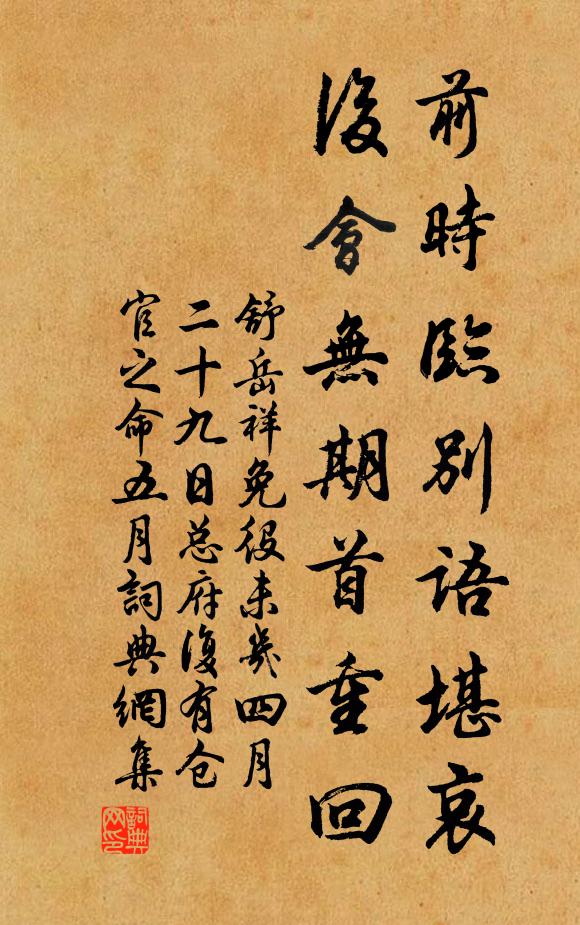 前時臨別語堪哀
後會無期首重回
舒岳祥免役未幾四月
二十九日总府復有仓
官之命五月詞典網集
詞典网印